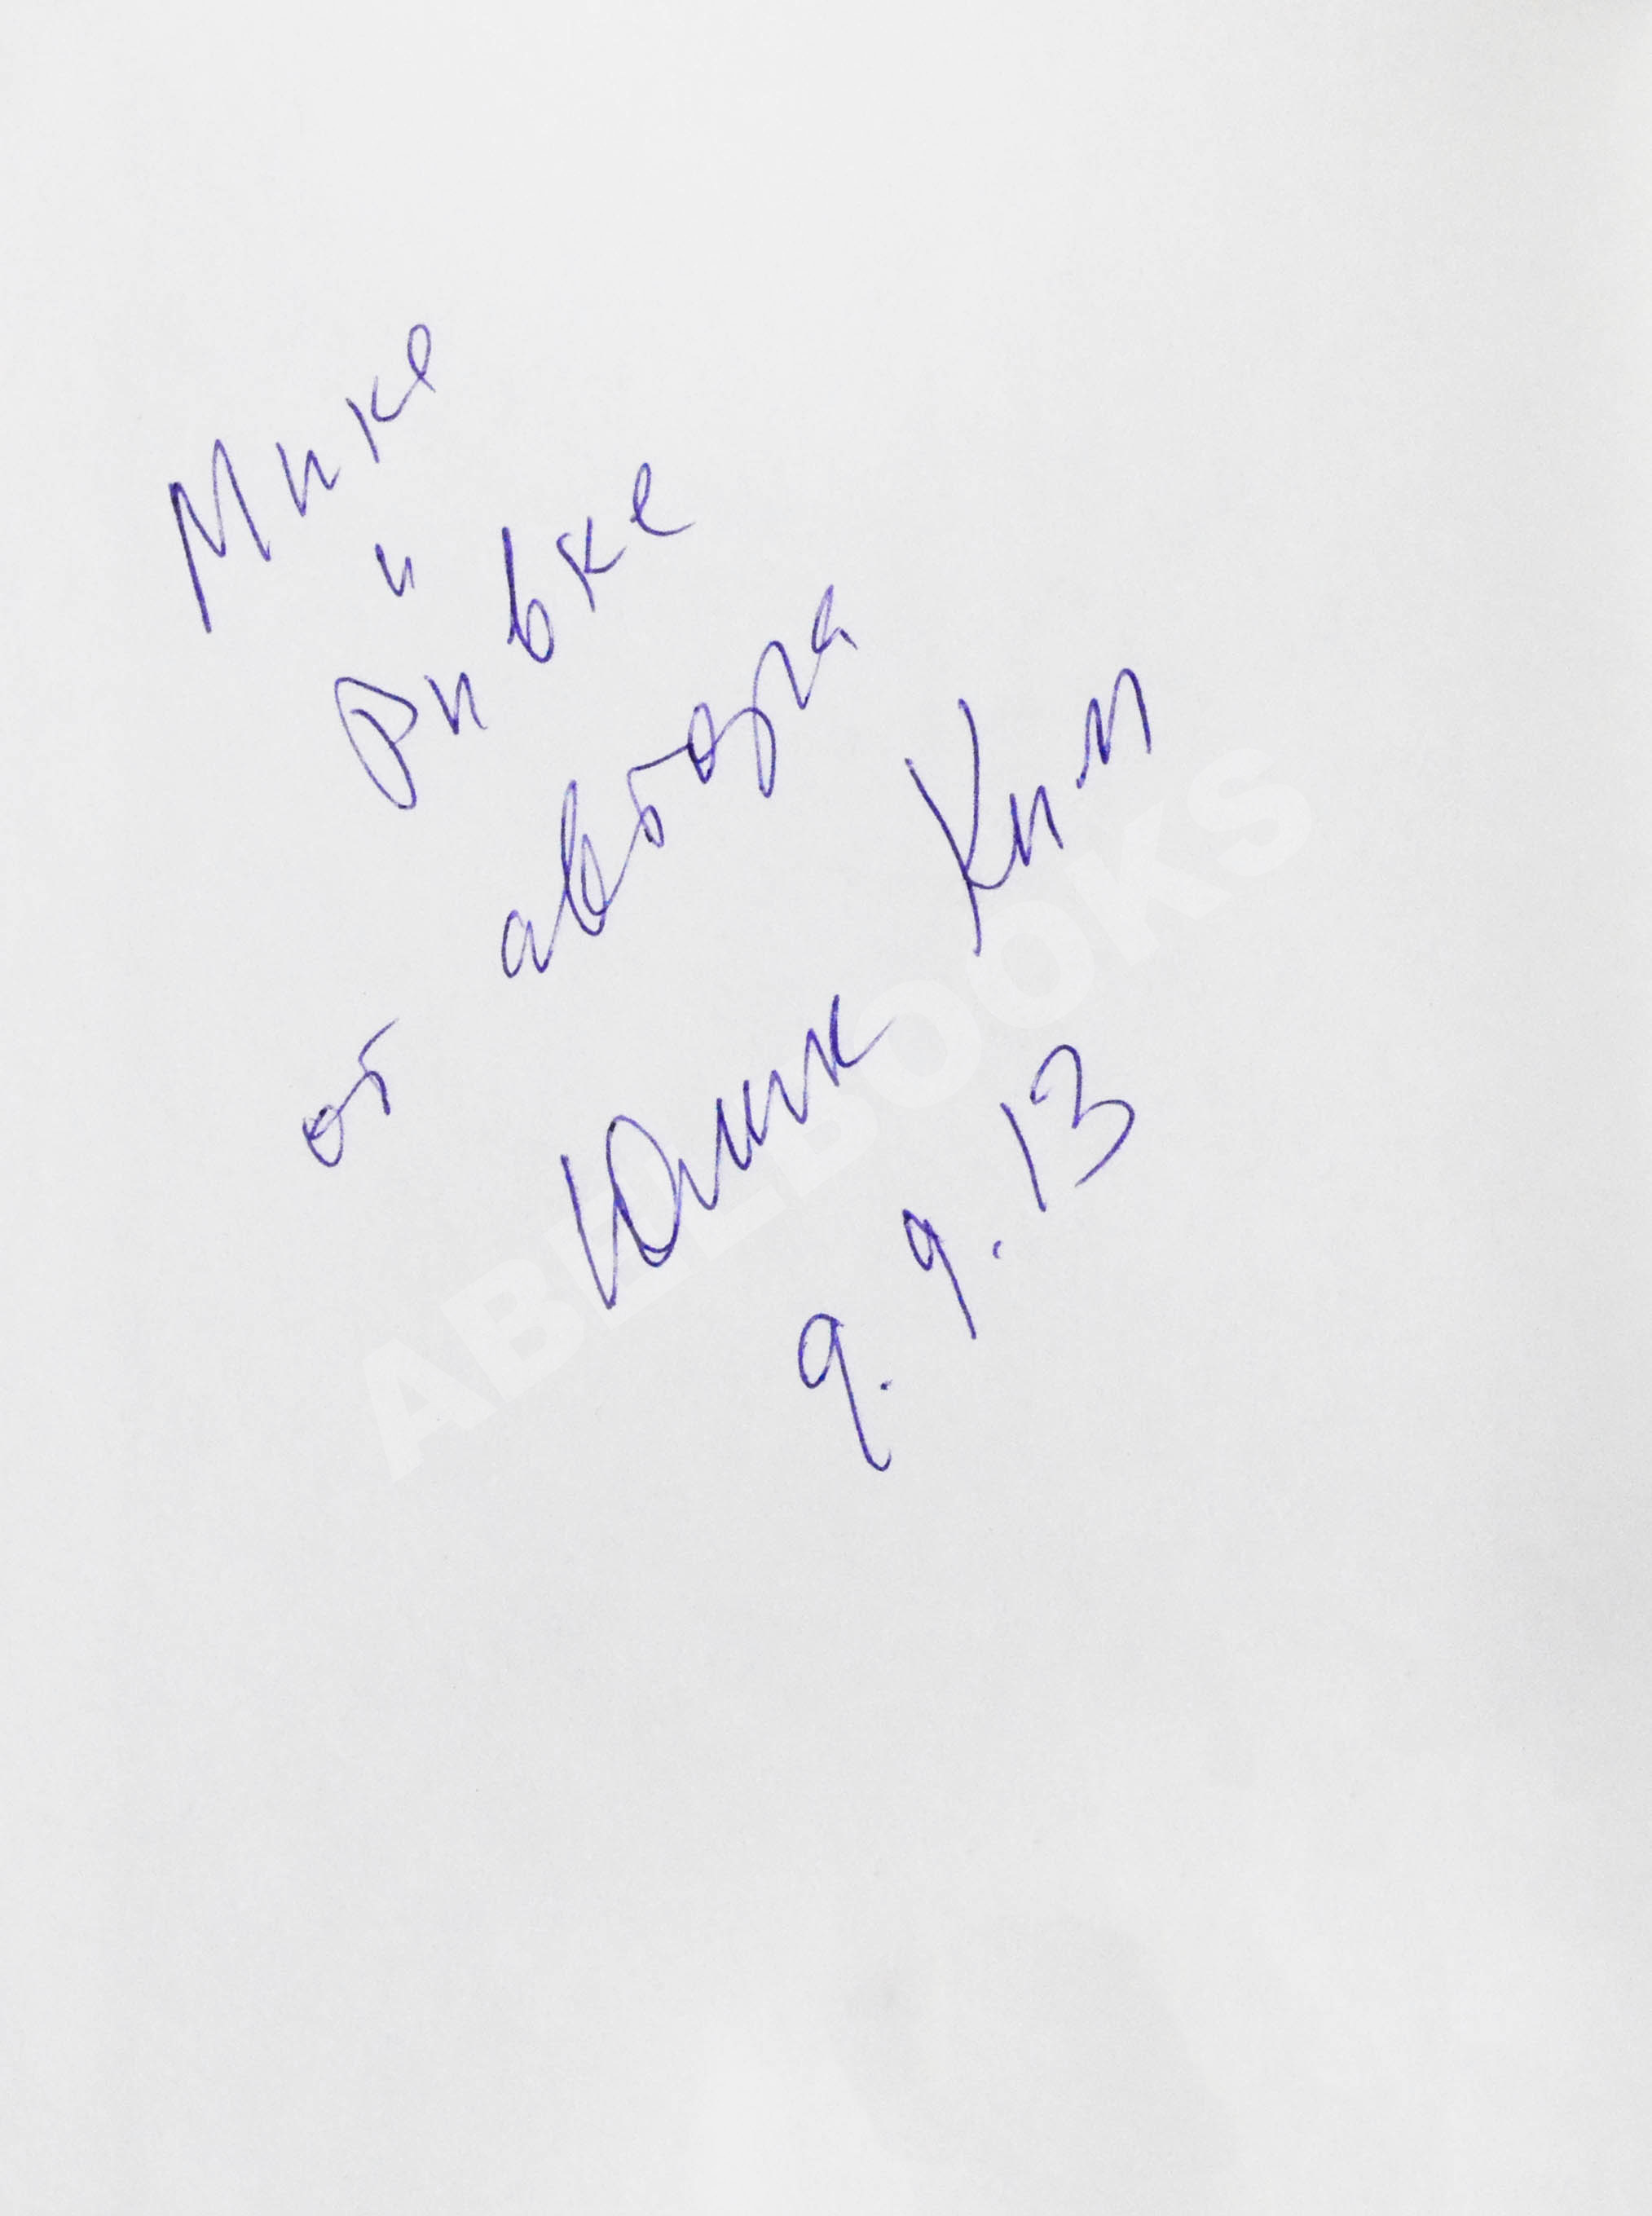 Мике
и
Ривке
от автора
Юлик Ким
9.9.13
ABELBOOKS